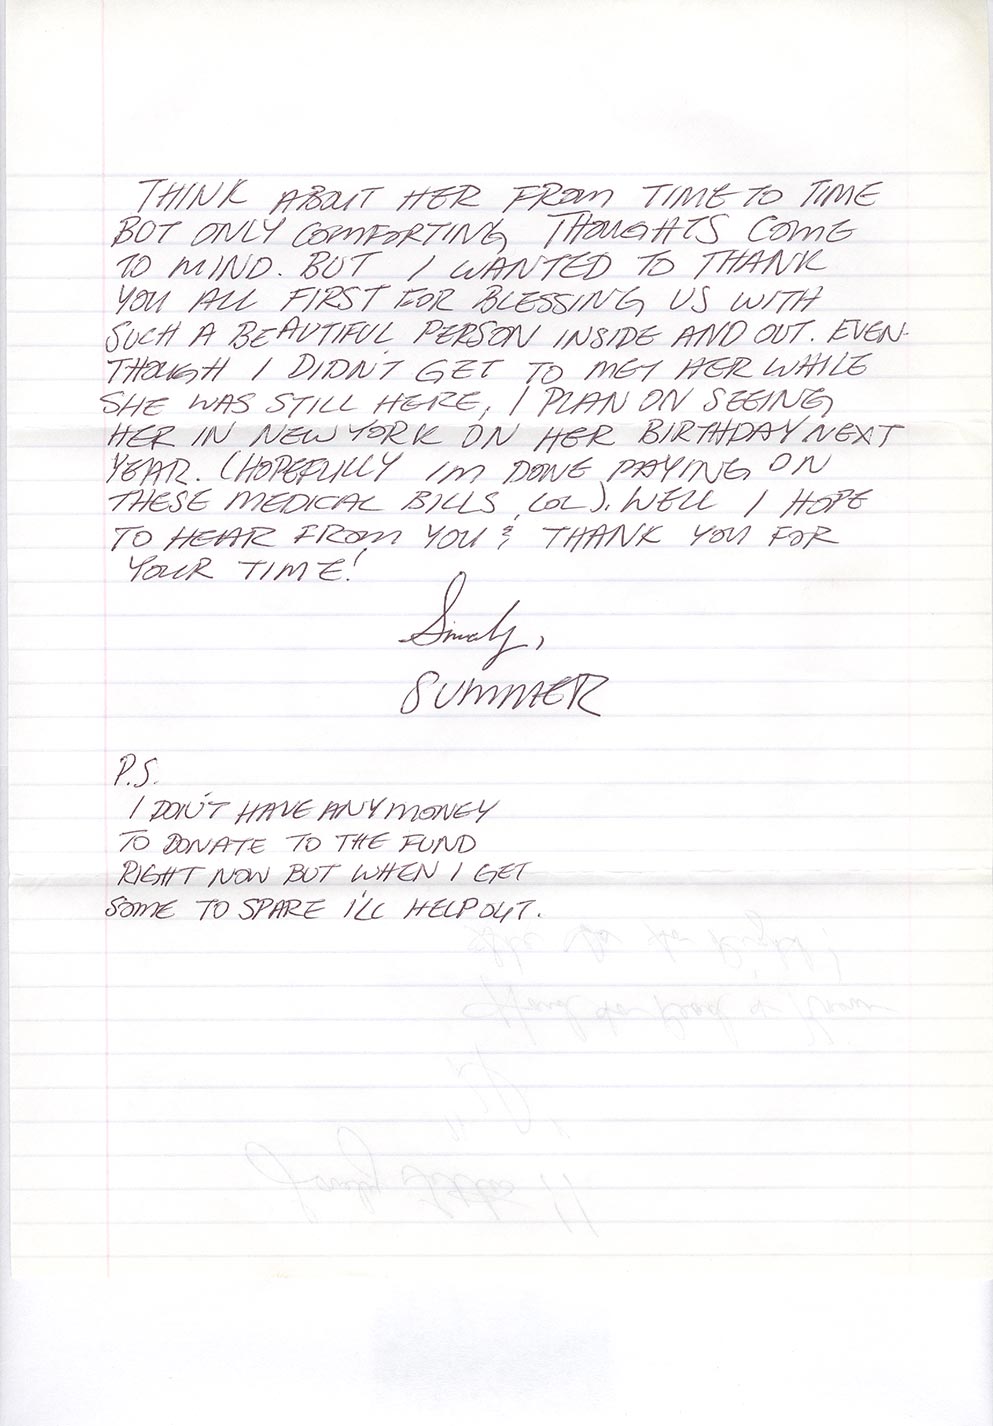 THINK ABOUT HER FROM TIME TO TIME
BUT ONLY COMFORTING THOUGHTS COME
TO MIND. BUT I WANTED TO THANK
YOU ALL FIRST FOR BLESSING US WITH
SUCH A BEAUTIFUL PERSON INSIDE AND OUT. EVEN-
THOUGH I DIDN'T GET TO MET HER WHILE
SHE WAS STILL HERE, I PLAN ON SEEING
HER IN NEW YORK ON HER BIRTHDAY NEXT
YEAR. (HOPEFULLY IM DONE PAYING ON
THESE MEDICAL BILLS, LOL). WELL I HOPE
TO HEAR FROM YOU & THANK YOU FOR
YOUR TIME!
Sincerely,
SUMMER
P.S.
I DON'T HAVE ANY MONEY
TO DONATE TO THE FUND
RIGHT NOW BUT WHEN I GET
SOME TO SPARE I'LL HELP OUT.